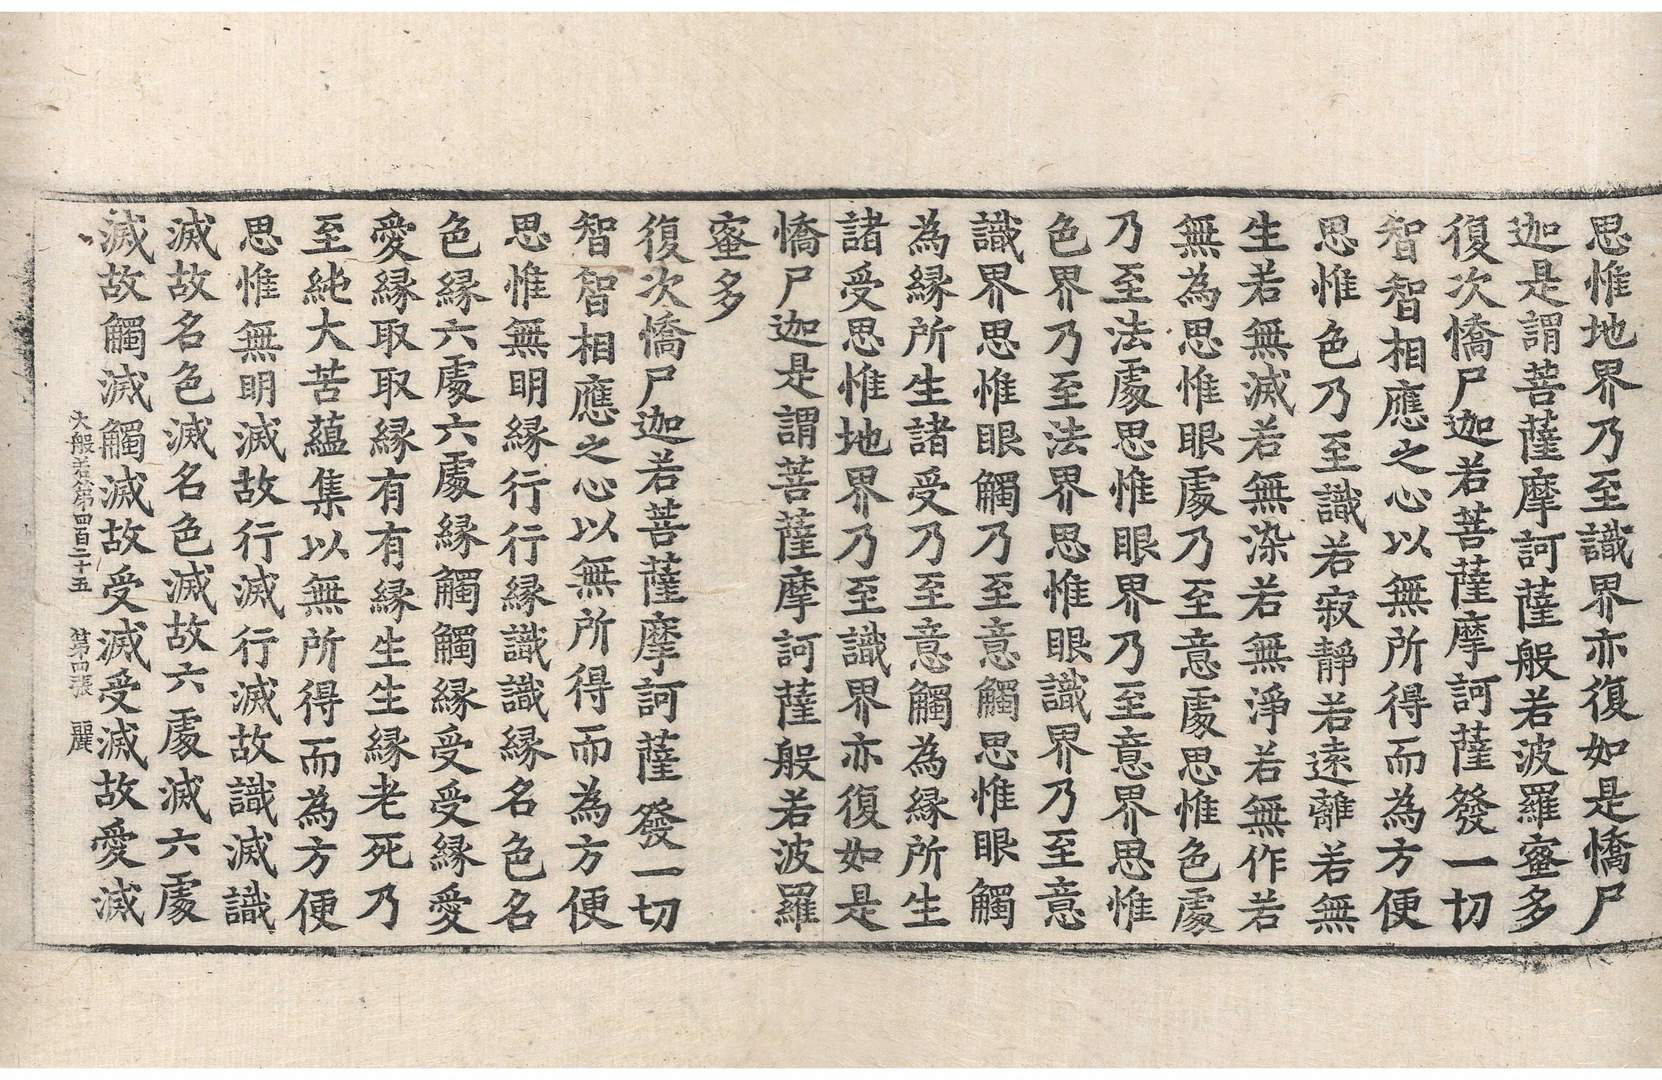 思惟地界乃至識界亦復如是憍尸
迦是謂菩薩摩訶薩般若波羅蜜多
復次憍尸迦若菩薩摩訶薩發一切
智智相應之心以無所得而為方便
思惟色乃至識若寂靜若遠離若無
生若無滅若無染若無淨若無作若
無為思惟眼處乃至意處思惟色處
乃至法處思惟眼界乃至意界思惟
色界乃至法界思惟眼識界乃至意
識界思惟眼觸乃至意觸思惟眼觸
為緣所生諸受乃至意觸為緣所生
諸受思惟地界乃至識界亦復如是
憍尸迦是謂菩薩摩訶薩般若波羅
蜜多
復次憍尸迦若菩薩摩訶薩發一切
智智相應之心以無所得而為方便
思惟無明緣行行緣識識緣名色名
色緣六處六處緣觸觸緣受受緣愛
愛緣取取緣有有緣生生緣老死乃
至純大苦蘊集以無所得而為方便
思惟無明滅故行滅行滅故識滅識
滅故名色滅名色滅故六處滅六處
滅故觸滅觸滅故受滅受滅故愛滅
大般若第四百二十五 第四張 麗